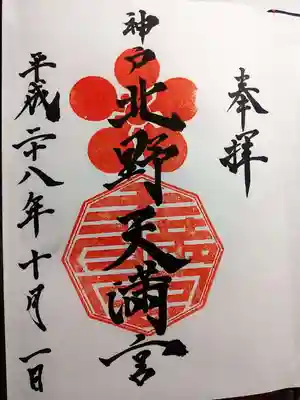 奉拝
神戸
北野天満宮
平成二十八年十月一日